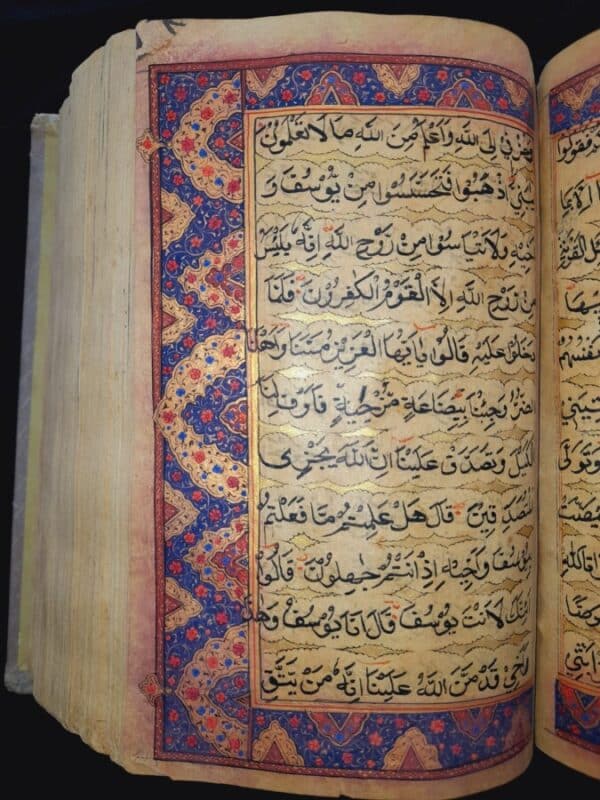 وَحُزْنِي اِلَى اللّٰهِ وَاَعْلَمُ مِنَ اللّٰهِ مَا لَا تَعْلَمُونَ
يٰبَنِيَّ اذْهَبُوا فَتَحَسَّسُوا مِنْ يُوسُفَ وَ
اَخِيهِ وَلَا تَايْـَٔسُوا مِنْ رَوْحِ اللّٰهِ اِنَّهُ
مِنْ رَوْحِ اللّٰهِ اِلَّا الْقَوْمُ الْكٰفِرُونَ فَلَمَّا
دَخَلُوا عَلَيْهِ قَالُوا يٰاَيُّهَا الْعَزِيزُ مَسَّنَا وَاَهْلَنَا
الضُّرُّ وَجِئْنَا بِبِضَاعَةٍ مُزْجٰيةٍ فَاَوْفِ لَنَا
الْكَيْلَ وَتَصَدَّقْ عَلَيْنَا اِنَّ اللّٰهَ يَجْزِى
الْمُتَصَدِّقِينَ قَالَ هَلْ عَلِمْتُمْ مَا فَعَلْتُمْ
بِيُوسُفَ وَاَخِيهِ اِذْ اَنْتُمْ جٰهِلُونَ قَالُوا
اَئِنَّكَ لَاَنْتَ يُوسُفُ قَالَ اَنَا يُوسُفُ وَهٰذَا
اَخِي قَدْ مَنَّ اللّٰهُ عَلَيْنَا اِنَّهُ مَنْ يَتَّقِ